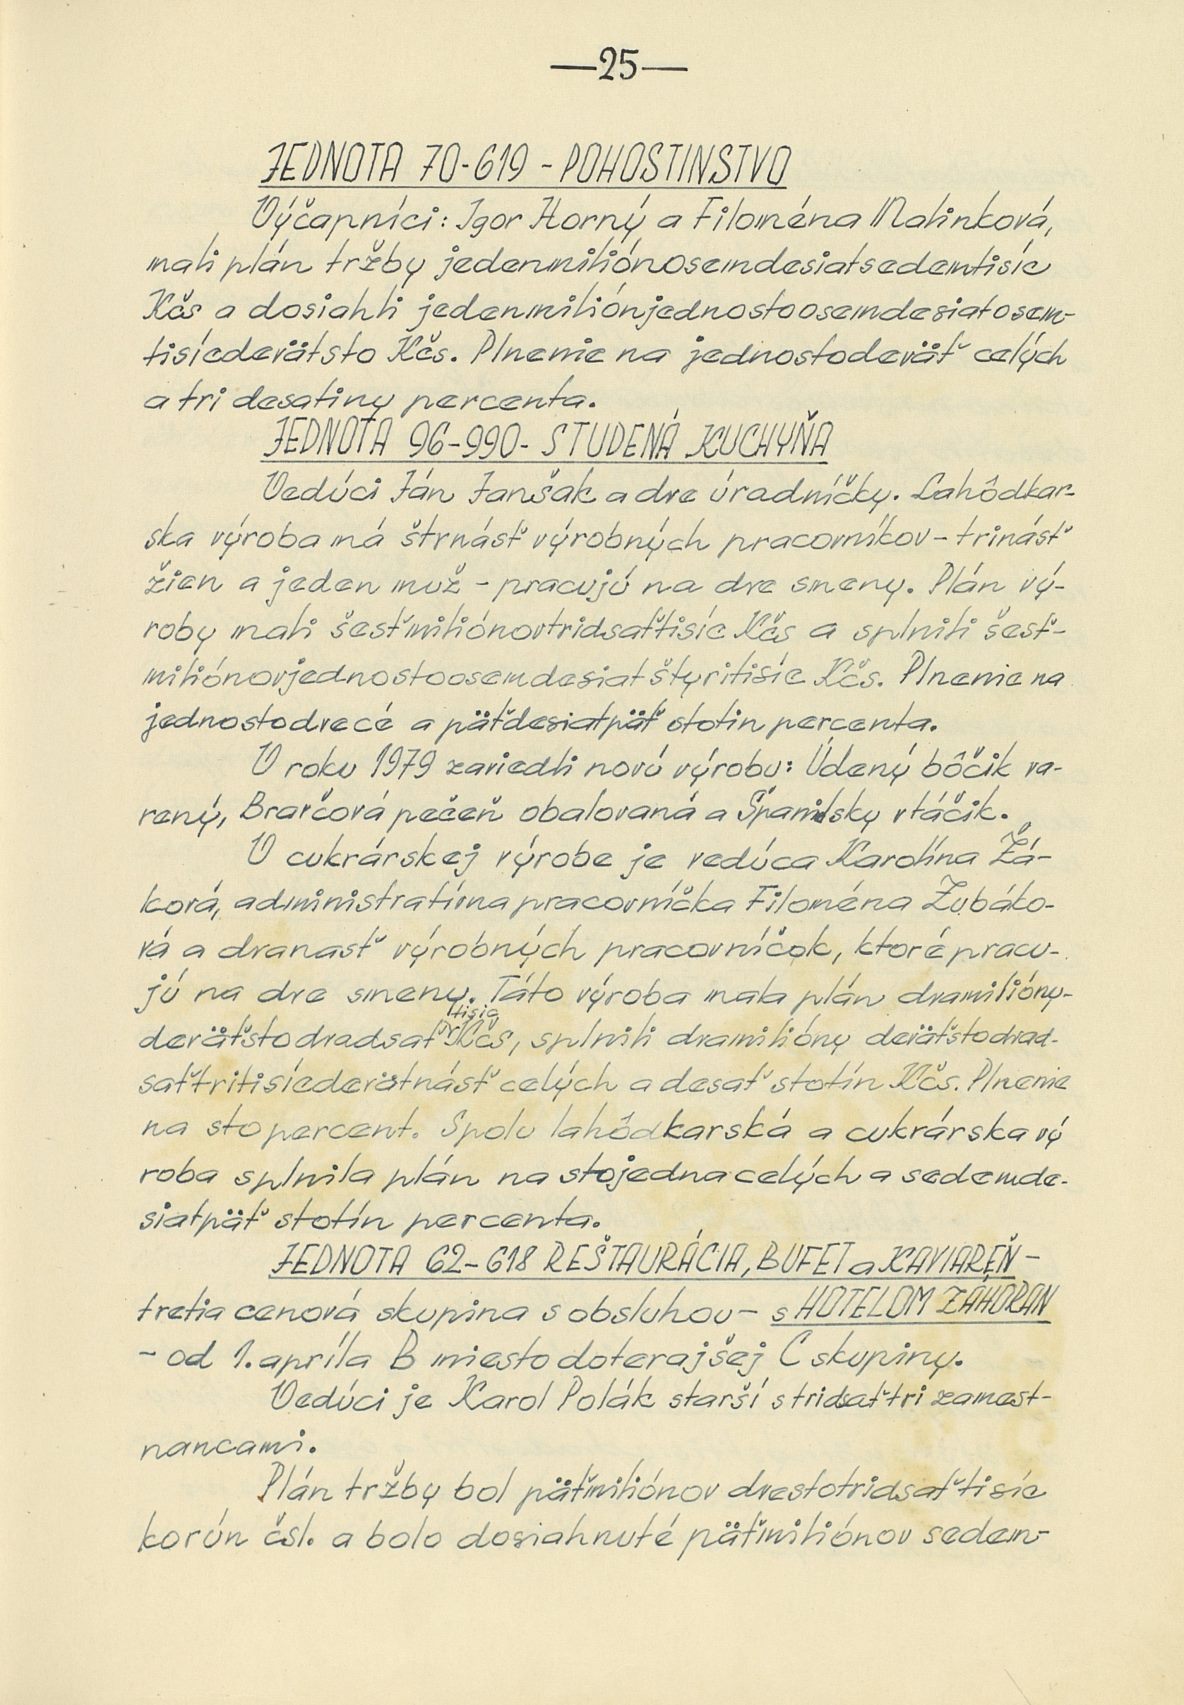 —25—
JEDNOTA 70-619 - POHOSTINSTVO
Výčapníci: Igor Horný a Filoména Malinková,
mali plán tržby jedenmiliónosemdesiatsedemtisíc
Kčs a dosiahli jedenmiliónjednostoosemdesiatosem-
tisícdeväťsto Kčs. Plnenie na jednostodeväť celých
a tri desatiny percenta.
JEDNOTA 96-990- STUDENÁ KUCHYŇA
Vedúci Ján Janšák a dve úradníčky. Lahôdkar-
ska výroba má štrnásť výrobných pracovníkov - trinásť
žien a jeden muž - pracujú na dve smeny. Plán vý-
roby mali šesťmiliónovtridsaťtisíc Kčs a splnili šesť-
miliónovjednostoosemdesiatštyritisíc Kčs. Plnenie na
jednostodvecé a päťdesiatpäť stotin percenta.
V roku 1979 zaviedli novú výrobu: Údený bôčik va-
rený, Bravčová pečeň obalovaná a Španilsky vtáčik.
V cukrárskej výrobe je vedúca Karolína Žá-
ková, administratívna pracovníčka Filoména Zubáko-
vá a dvanasť výrobných pracovníčok, ktoré pracu-
jú na dve smeny. Táto výroba mala plán dvamilióny-
tisíc
deväťstodvadsaťtri Kčs, splnili dvamilióny deväťstodvad-
saťtritisícdevätnásť celých a desať stotín Kčs. Plnenie
na sto percent. Spolu lahôdkarská a cukrárska vý
roba splnila plán na stojedna celých a sedemde-
siatpäť stotín percenta.
JEDNOTA 62-618 REŠTAURÁCIA, BUFET a KAVIAREŇ -
tretia cenová skupina s obsluhou - s HOTELOM ZÁHORAN
- od 1. apríla B miesto doterajšej C skupiny.
Vedúci je Karol Polák starší s tridsaťtri zamest-
nancami.
Plán tržby bol päťmiliónov dvestotridsaťtisíc
korún čsl. a bolo dosiahnuté päťmiliónov sedem-